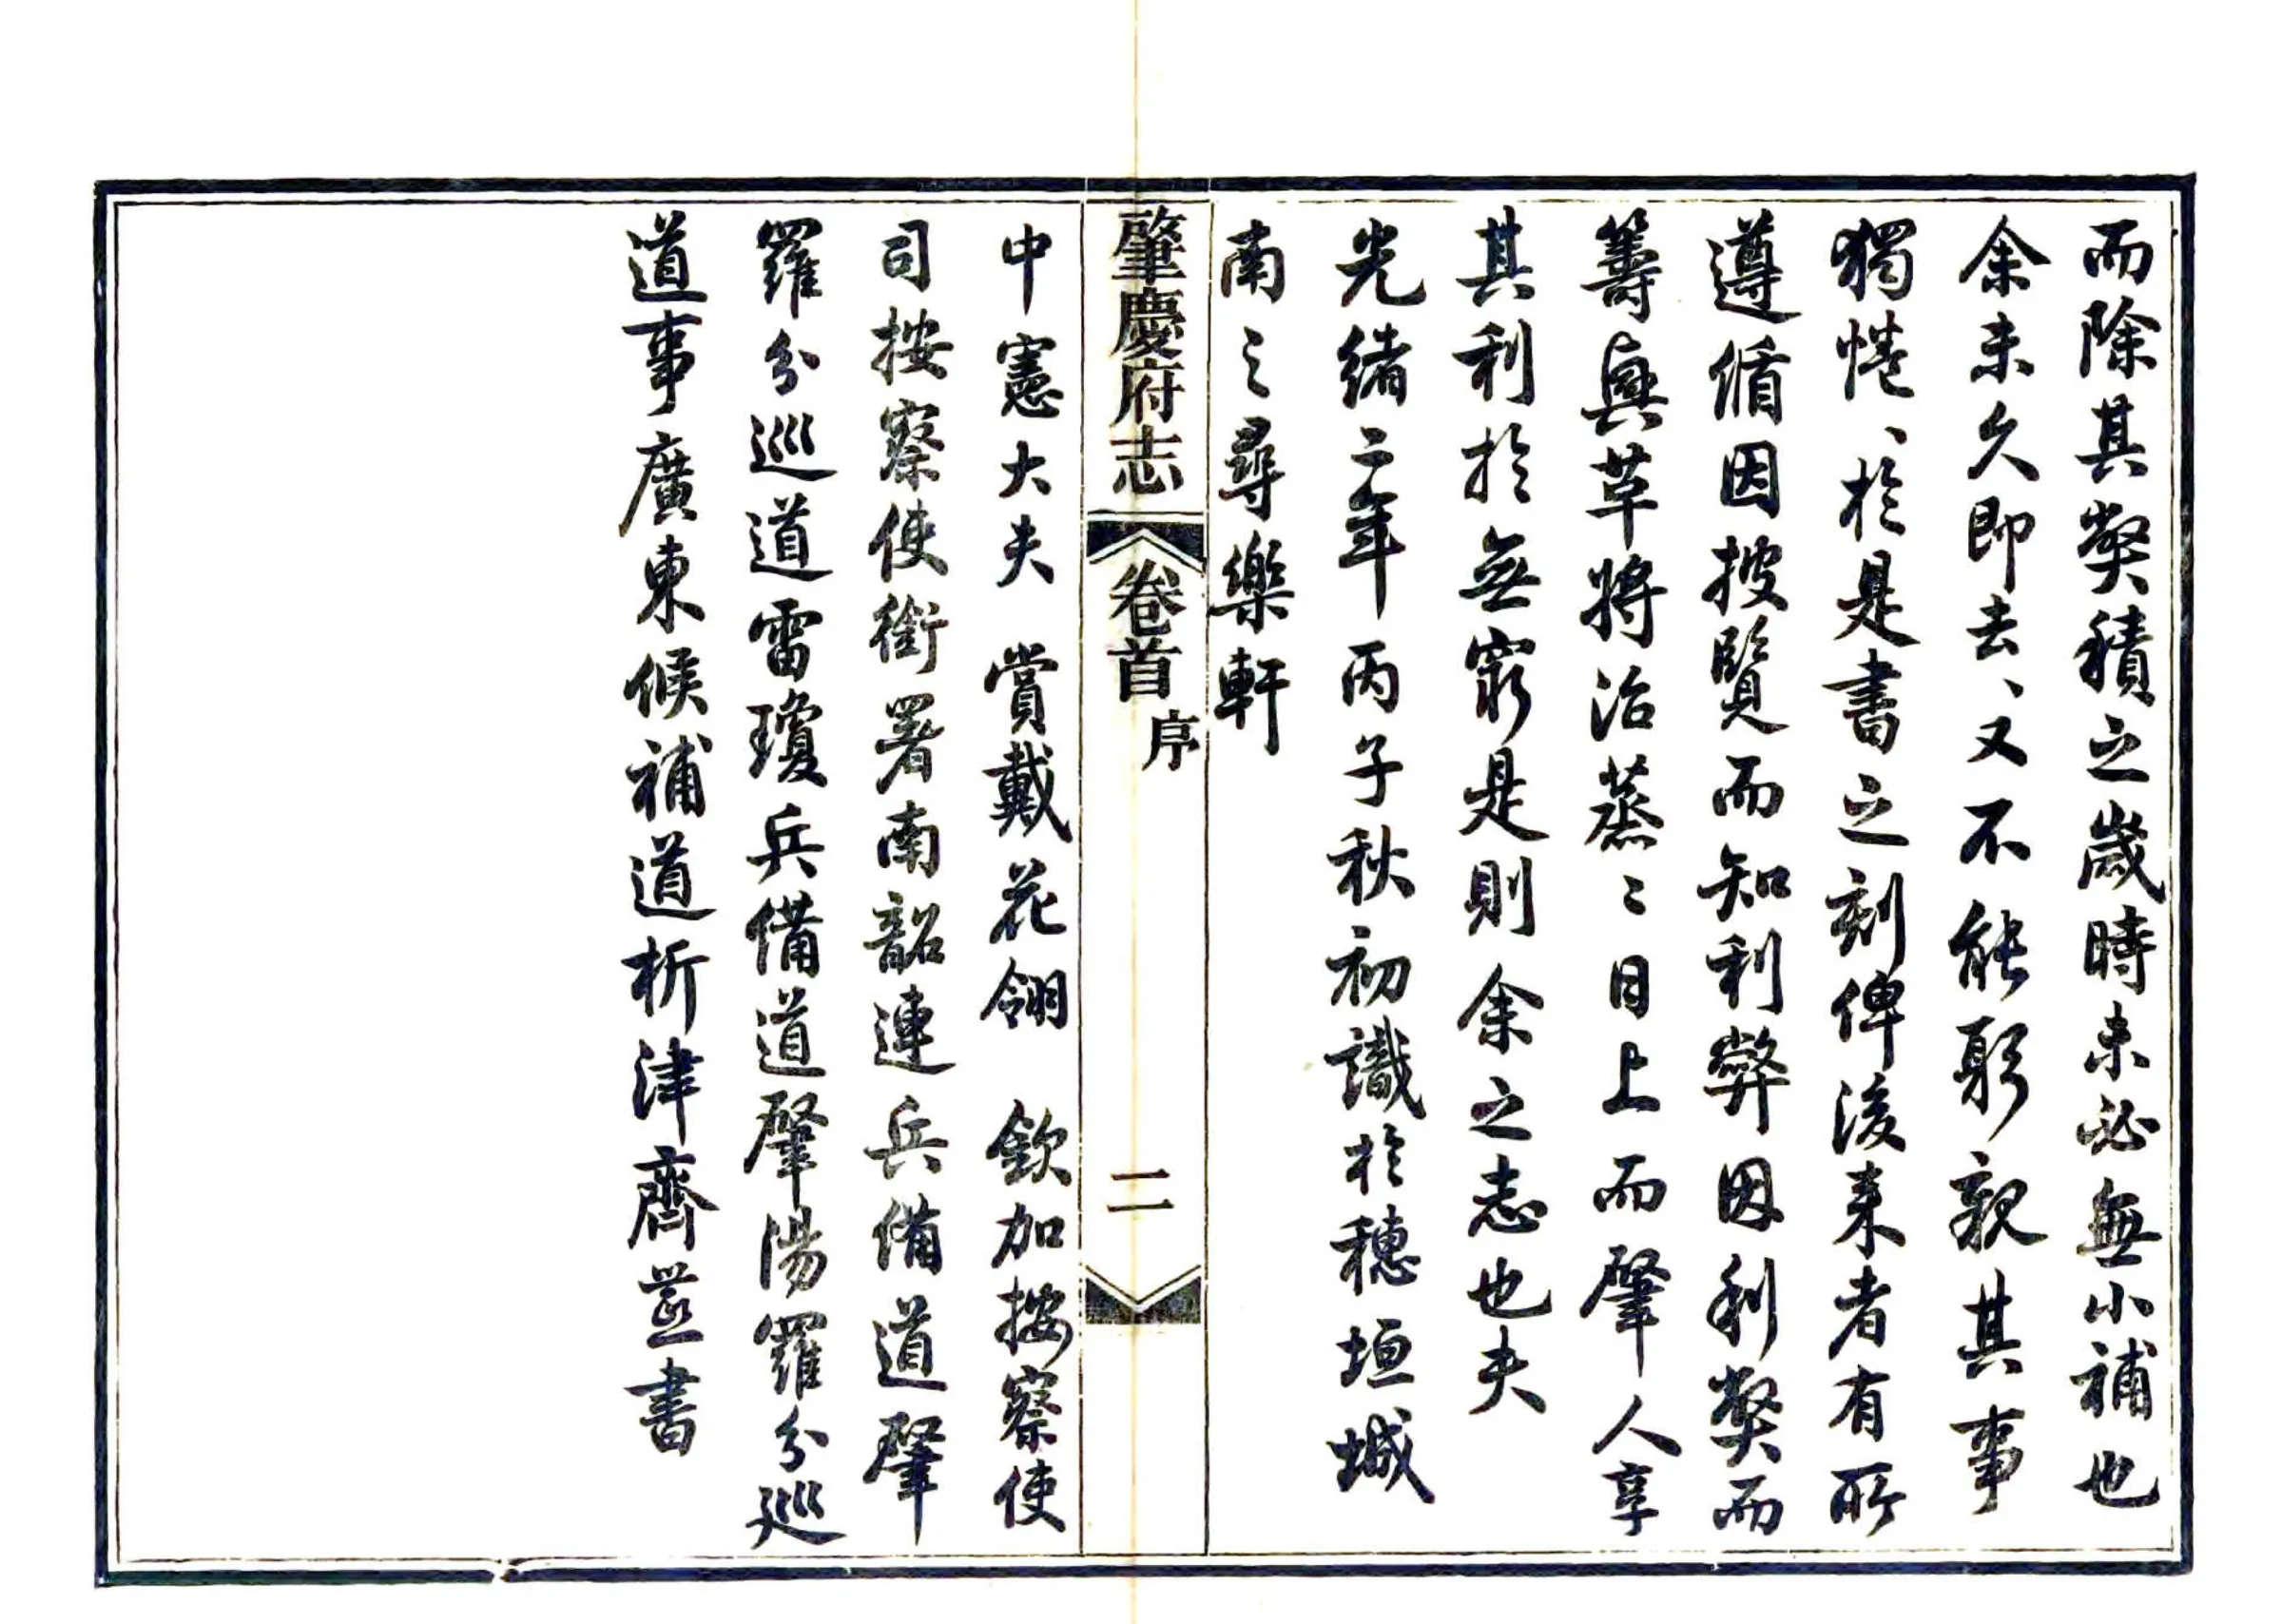 而除其獘積之歲時未必無小補也
余未久即去、又不能躬親其事
獨惓、於是書之刻俾後来者有所
遵循因披覽而知利弊因利獘而
籌興革將治蒸〻日上而肇人享
其利於無窮是則余之志也夫
光緒二年丙子秋初識於穗垣城
南之尋樂軒
肇慶府志 卷首 序 二
中憲大夫 賞戴花翎 欽加按察使
司按察使銜署南韶連兵備道肇
羅分巡道雷瓊兵備道肇陽羅分巡
道事廣東候補道析津齊莅書